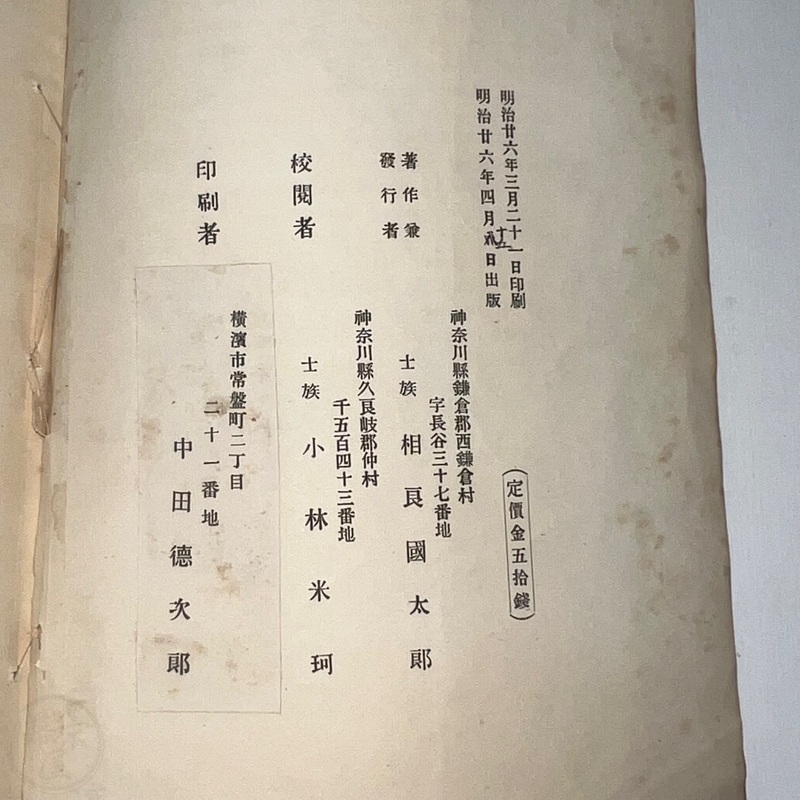 明治廿六年三月二十一日印刷
明治廿六年四月十五日出版
(定價金五拾錢)
著作兼
發行者
神奈川縣鎌倉郡西鎌倉村
字長谷三十七番地
士族 相良國太郎
校閱者
神奈川縣久良岐郡仲村
千五百四十三番地
士族 小林米珂
印刷者
橫濱市常盤町二丁目
二十一番地
中田德次郎